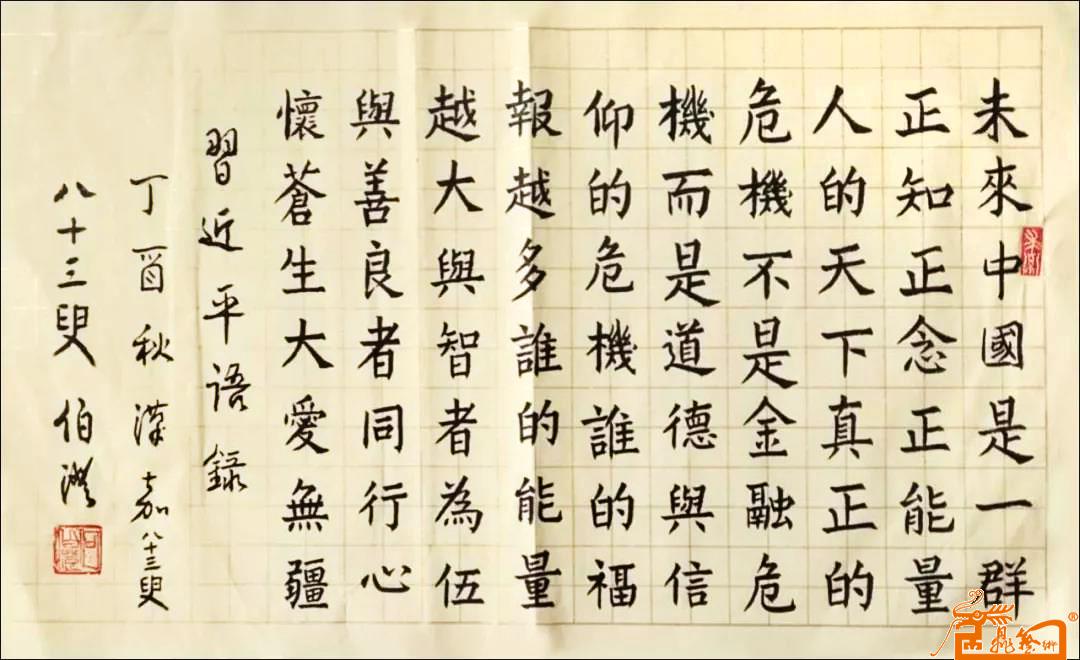 未來中國是一群
正知正念正能量
人的天下真正的
危機不是金融危
機而是道德與信
仰的危機誰的福
報越多誰的能量
越大與智者為伍
與善良者同行心
懷蒼生大愛無疆
習近平语錄
丁酉秋漢嘉八十三叟
八十三叟伯